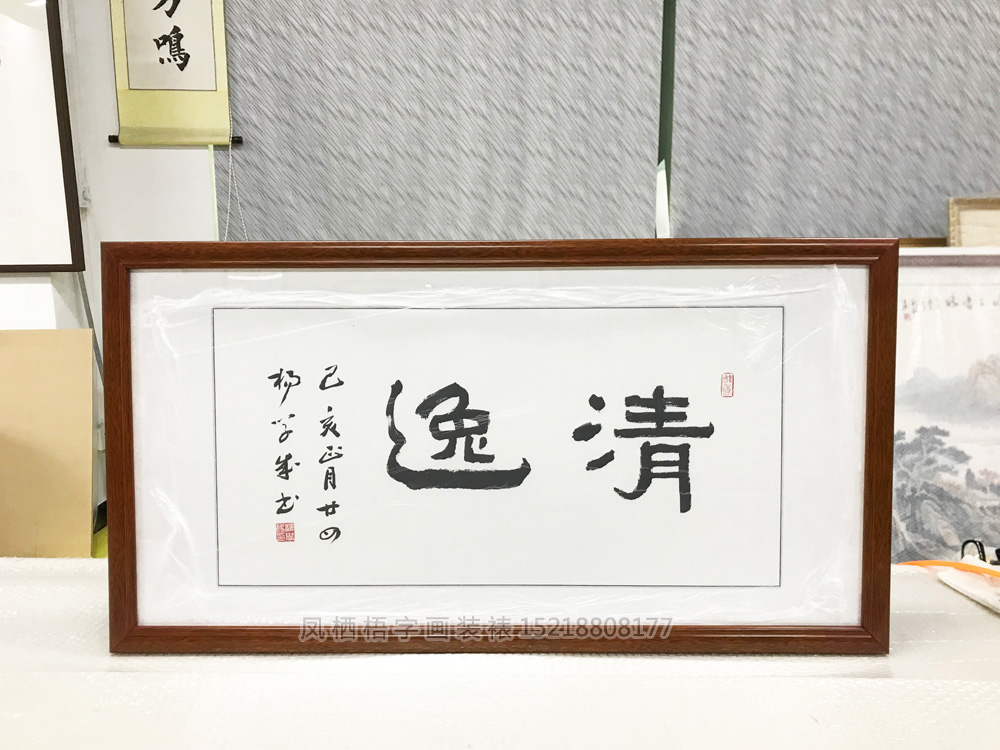 鳴
清逸
己亥正月廿四
杨学成书
凤栖梧字画装裱 15218808177